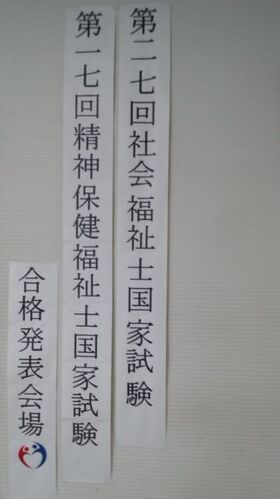 第二七回社会福祉士国家試験
第一七回精神保健福祉士国家試験
合格発表会場